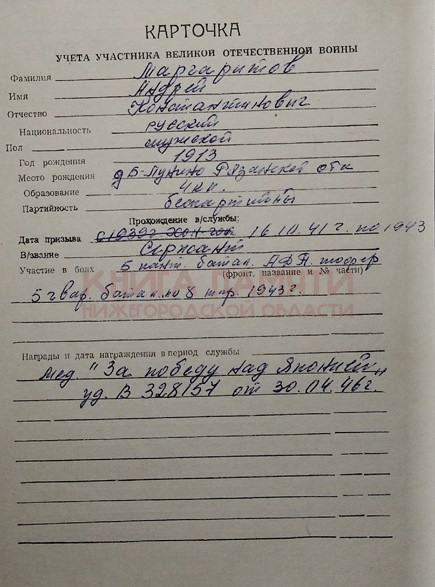 КАРТОЧКА
УЧЕТА УЧАСТНИКА ВЕЛИКОЙ ОТЕЧЕСТВЕННОЙ ВОЙНЫ
Фамилия Маргаритов
Имя Андрей
Отчество Константинович
Национальность русский
Пол мужской
Год рождения 1913
Место рождения д Б-Пунино Рязанской обл
Образование 4 кл.
Партийность беспартийный
Прохождение в/службы:
Дата призыва 16.10.41 г. по 1943
В/звание Сержант
Участие в боях 5 батал.
(фронт, название и № части)
5 гвар. батал. по 8 1943 г.
КНИГА ПАМЯТИ
НИЖЕГОРОДСКОЙ ОБЛАСТИ
Награды и дата награждения в период службы
Мед. "За победу над Японией"
уд. В 328157 от 30.04.46 г.